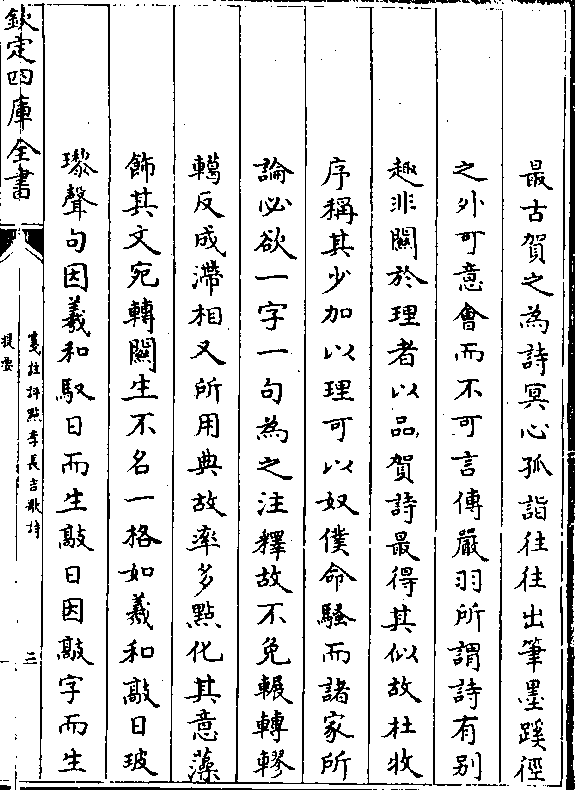 最古賀之為詩冥心孤詣往往出筆墨蹊徑
之外可意會而不可言傳嚴羽所謂詩有别
趣非關於理者以品賀詩最得其似故杜牧
序稱其少加以理可以奴僕命騷而諸家所
論必欲一字一句為之注釋故不免輾轉轇
轕反成滯相又所用典故率多點化其意藻
飾其文宛轉關生不名一格如羲和敲日玻
瓈聲句因羲和馭日而生敲日因敲字而生
欽定四庫全書
箋註評點李長吉歌詩
提要
三